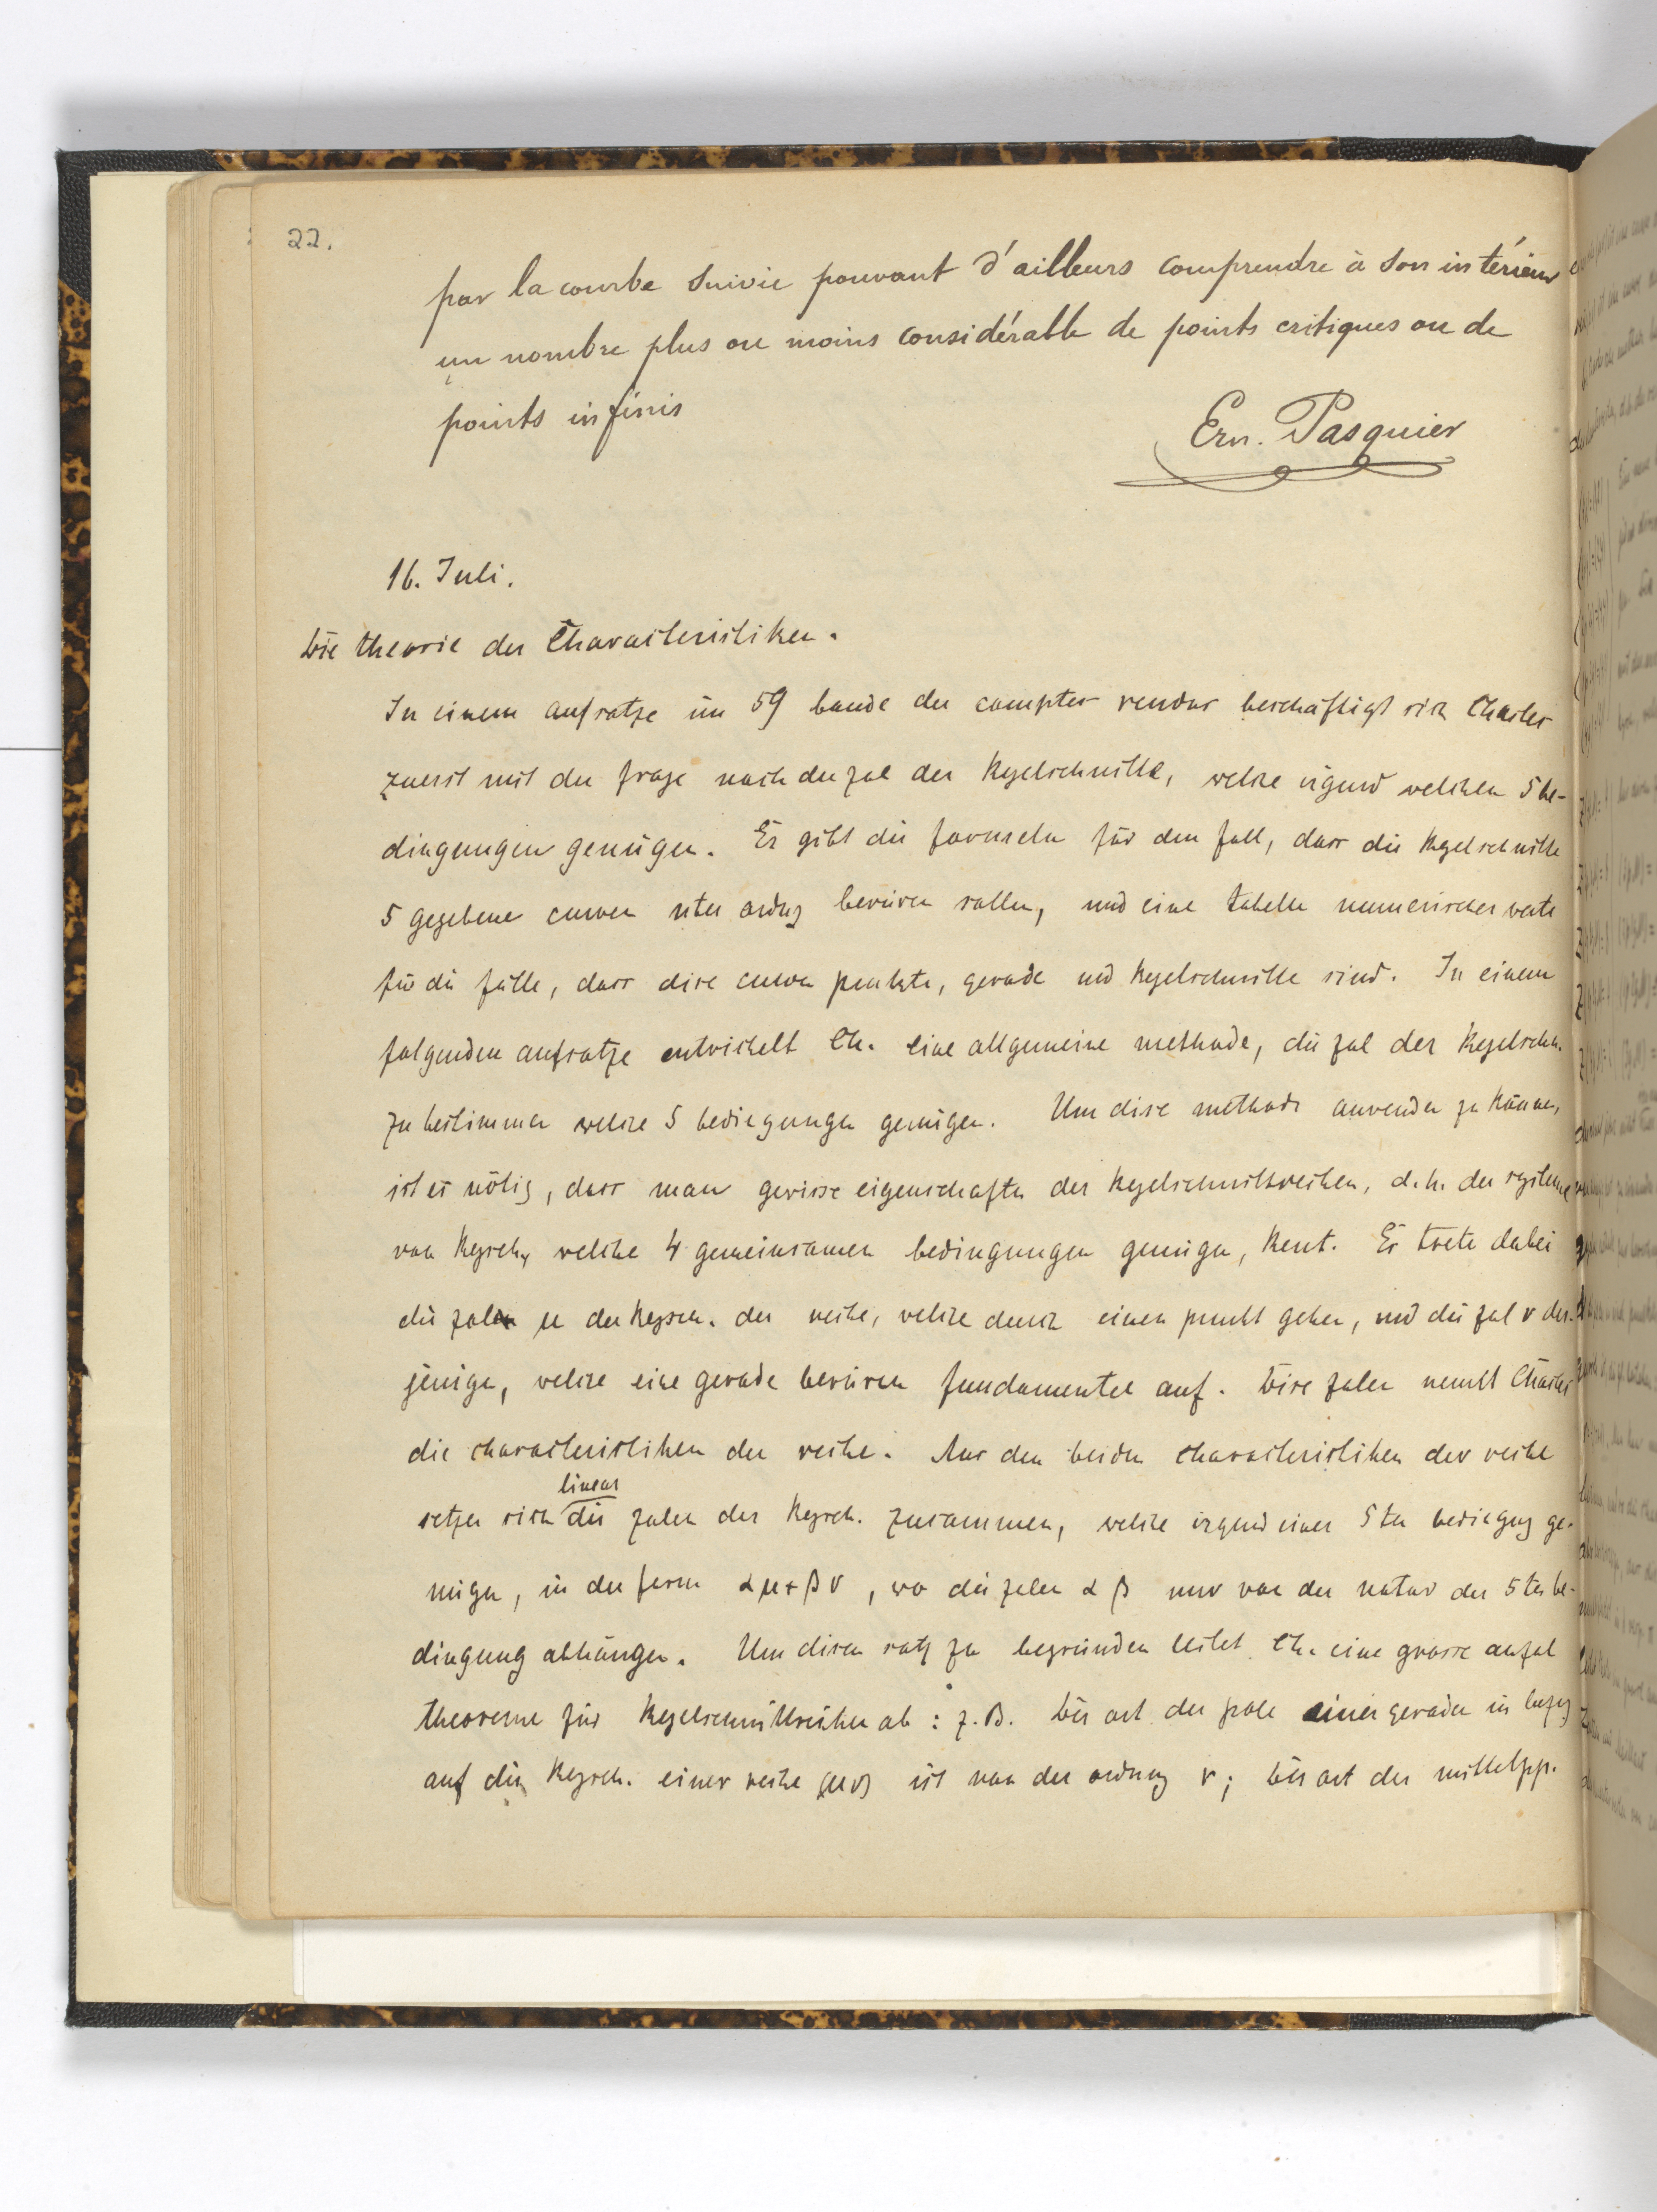 22.
par la courbe suivie pouvant d'ailleurs comprendre à son intérieur
un nombre plus ou moins considérable de points critiques ou de
points infinis
Ern. Pasquier
16. Juli.
Die theorie der Characteristiken.
In einem aufsatze im 59 bande der comptes rendus beschäftigt sich Chasles
zuerst mit der frage nach der zal der Kegelschnitte, welche irgend welchen 5 be-
dingungen genügen. Er gibt die formeln für den fall, dass die Kegelschnitte
5 gegebene curven nter ordng berüren sollen, und eine tabelle numerischer werte
für die fälle, dass dise curven punkte, gerade und Kegelschnitte sind. In einem
folgenden aufsatze entwickelt Ch. eine allgemeine methode, die zal der Kegelschn.
zu bestimmen welche 5 bedingungen genügen. Um dise methode anwenden zu können,
ist es nötig, dass man gewisse eigenschaften der Kegelschnittsreihen, d. h. der systeme
von Kegsch, welche 4 gemeinsamen bedingungen genügen, kent. Es trete dabei
die zal μ der Kegsch. der reihe, welche durch einen punkt gehen, und die zal ν der-
jenigen, welche eine gerade berüren fundamentel auf. Dise zalen nennt Chasles
die characteristiken der reihe. Aus den beiden characteristiken der reihe
linear
setzen sich die zalen der Kegsch. zusammen, welche irgend einer 5ten bedingung ge-
nügen, in der form αμ+βν, wo die zalen α β nur von der natur der 5ten be-
dingung abhängen. Um disen satz zu begründen leitet Ch. eine grosse anzal
theoreme für Kegelschnittreihen ab: z. B. Der ort der pole einer geraden in bezug
auf die Kegsch. einer reihe (μν) ist von der ordnung ν; der ort der mittelpp.